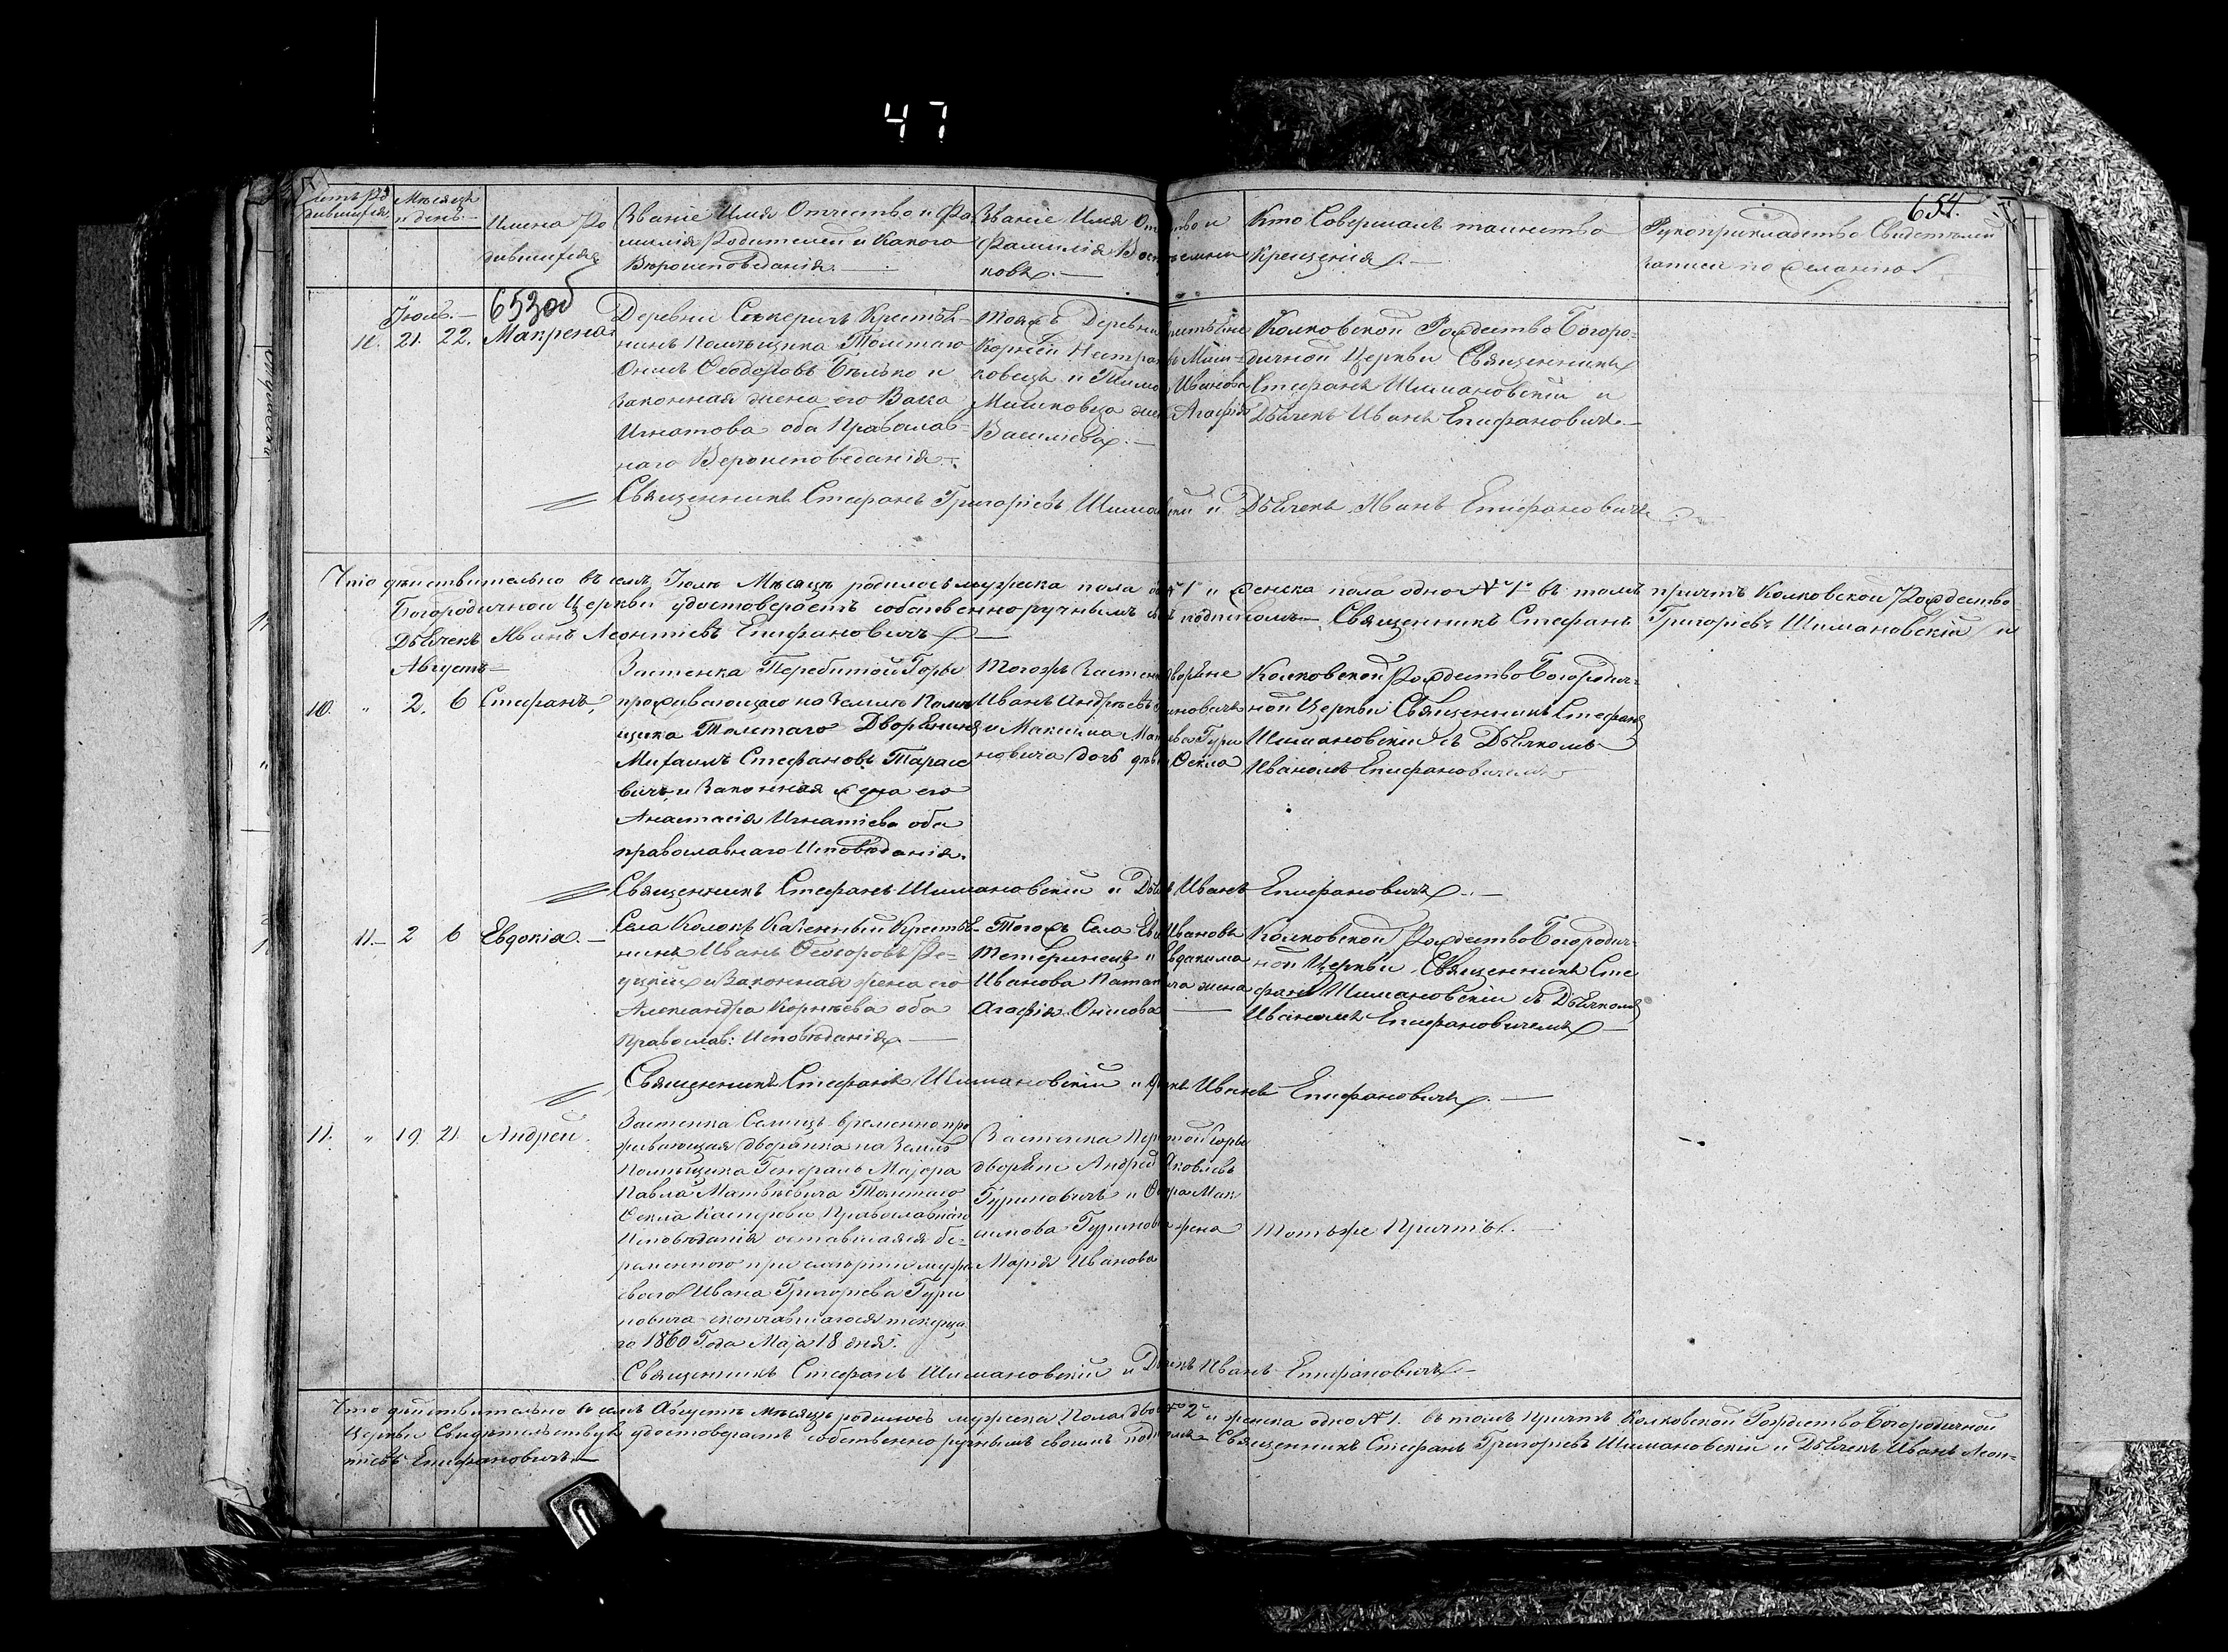 47
654.
Мѣсяцъ
и день.
Имена Ро
дившихся
Званіе Имя Отчество и Фа
милія Родителей и Какого
Вѣроисповеданія.
Званіе Имя
Фамилія
Кто Совершалъ таинство
Крещенія.
Рукоприкладство Свидетелей
записи по желанію
Іюль.
653 об
10. 21. 22. Макрена
Деревни Крестья-
нинъ Помѣщика Толстаго
Феодоровъ Бѣлько и
законная жена его
Игнатова оба Православ-
наго Вероисповеданія.
Тояжъ Деревни
Корней
ковецъ и
Мишковца Агафія
Василіева.
Колковской Рождество Богоро-
дичной Церкви Священникъ
Стефанъ Шимановскій и
Дьячекъ Иванъ Епифановичъ.
Священникъ Стефанъ Григоріевъ и Дьячекъ Иванъ Епифановичъ
Что действительно въ семъ Іюлѣ Мѣсяцѣ родилось мужеска пола №1 и женска пола одно №1 въ томъ причтъ Колковской Рождество
Богородичной Церкви удостоверяетъ собственноручнымъ подписомъ Священникъ Стефанъ Григоріевъ Шимановскій и
Дьячекъ Иванъ Леонтіевъ Епифановичъ
Августъ
10. " 2. 6 Стефанъ,
Застенка Перебитой Горы
проживающаго на Земли Помѣ
щика Толстаго Дворянина
Михаилъ Стефановъ Тарасе
вичъ и Законная жена его
Анастасія Игнатіева оба
православнаго Исповѣданія.
Тогожъ Дворяне
Иванъ Андреевъ
и Максима Гури
новича дочь Фекла
Колковской Рождество Богородич-
ной Церкви Священникъ Стефанъ
Шимановскій съ Дьячкомъ
Иваномъ Епифановичемъ
Священникъ Стефанъ Шимановскій и Иванъ Епифановичъ.
11. 2 6 Евдокія.
Села Колокъ Казенный Крестья-
нинъ Иванъ Феодоровъ Ре-
уцкій и Законная жена его
Александра Корнѣева оба
Православ: Исповѣданія
Тогожъ Села Ивановъ
и Евдакима
Иванова жена
Агафія Онисова
Колковской Рождество Богородич-
ной Церкви Священникъ Сте
фанъ Шимановскій съ Дьячкомъ
Иваномъ Епифановичемъ
Священникъ Стефанъ Шимановскій и Иванъ Епифановичъ.
11. " 19. 21. Андрей.
Застенка Селищъ временно про
живающая дворянка на Землѣ
Помѣщика Генералъ Маіора
Павла Матвѣевича Толстаго
Фекла Касперова Православнаго
Исповѣданія оставшаяся бе-
ременною при смерти мужа
своего Ивана Григоріева Гури
новича скончавшагося текуща
го 1860 Года Маја 18 дня.
Застенка Горы
дворяне Андрей Яковлевъ
Гуриновичъ и Мак
симова жена
Марія Иванова
Тотъ же Причтъ.
Священникъ Стефанъ Шимановскій и Иванъ Епифановичъ
Что дѣйствительно въ семъ Августѣ Мѣсяцѣ родилось мужеска Пола №2 и женска одно №1. въ томъ Причтъ Колковской Рождество Богородичной
Церкви удостоверяетъ собственноручнымъ своимъ Священникъ Стефанъ Григоріевъ Шимановскій и Дьячекъ Иванъ Леон-
тіевъ Епифановичъ.